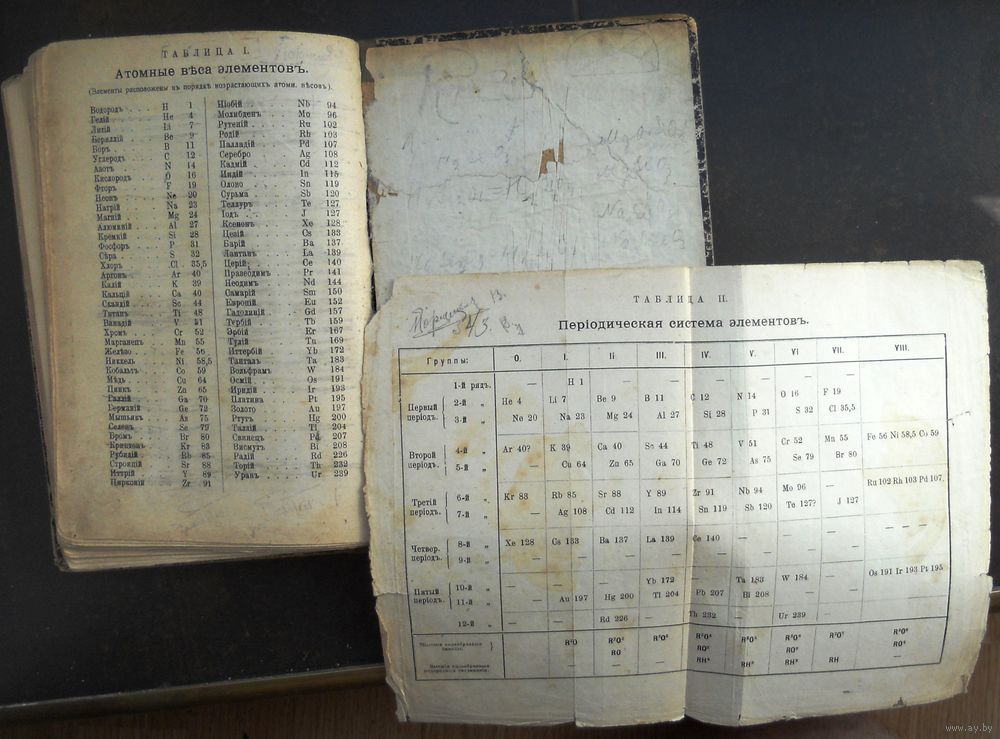 ТАБЛИЦА I.
Атомные вѣса элементовъ.
(Элементы расположены въ порядкѣ возрастающихъ атомн. вѣсовъ).
Водородъ . . . . H 1
Гелій . . . . He 4
Литій . . . . Li 7
Бериллій . . . . Be 9
Боръ . . . . B 11
Углеродъ . . . . C 12
Азотъ . . . . N 14
Кислородъ . . . . O 16
Фторъ . . . . F 19
Неонъ . . . . Ne 20
Натрій . . . . Na 23
Магній . . . . Mg 24
Алюминій . . . . Al 27
Кремній . . . . Si 28
Фосфоръ . . . . P 31
Сѣра . . . . S 32
Хлоръ . . . . Cl 35,5
Аргонъ . . . . Ar 40
Калій . . . . K 39
Кальцій . . . . Ca 40
Скандій . . . . Sc 44
Титанъ . . . . Ti 48
Ванадій . . . . V 51
Хромъ . . . . Cr 52
Марганецъ . . . . Mn 55
Желѣзо . . . . Fe 56
Никкель . . . . Ni 58,5
Кобальтъ . . . . Co 59
Мѣдь . . . . Cu 64
Цинкъ . . . . Zn 65
Галлій . . . . Ga 70
Германій . . . . Ge 72
Мышьякъ . . . . As 75
Селенъ . . . . Se 79
Бромъ . . . . Br 80
Криптонъ . . . . Kr 83
Рубидій . . . . Rb 85
Стронцій . . . . Sr 88
Иттрій . . . . Y 89
Цирконій . . . . Zr 91
Ніобій . . . . Nb 94
Молибденъ . . . . Mo 96
Рутеній . . . . Ru 102
Родій . . . . Rh 103
Палладій . . . . Pd 107
Серебро . . . . Ag 108
Кадмій . . . . Cd 112
Индій . . . . In 115
Олово . . . . Sn 119
Сурьма . . . . Sb 120
Теллуръ . . . . Te 127
Іодъ . . . . J 127
Ксенонъ . . . . Xe 128
Цезій . . . . Cs 133
Барій . . . . Ba 137
Лантанъ . . . . La 139
Церій . . . . Ce 140
Празеодимъ . . . . Pr 141
Неодимъ . . . . Nd 144
Самарій . . . . Sm 150
Европій . . . . Eu 152
Гадолиній . . . . Gd 157
Тербій . . . . Tb 159
Эрбій . . . . Er 167
Тулій . . . . Tu 169
Иттербій . . . . Yb 172
Танталъ . . . . Ta 183
Вольфрамъ . . . . W 184
Осмій . . . . Os 191
Иридій . . . . Ir 193
Платина . . . . Pt 195
Золото . . . . Au 197
Ртуть . . . . Hg 200
Таллій . . . . Tl 204
Свинецъ . . . . Pd 207
Висмутъ . . . . Bi 208
Радій . . . . Rd 226
Торій . . . . Th 232
Уранъ . . . . Ur 239
ТАБЛИЦА II.
343
Періодическая система элементовъ.
Группы: 0. I. II III. IV. V. VI VII. VIII.
1-й рядъ. — H 1 — — — — — —
Первый періодъ.
2-й „ He 4 Li 7 Be 9 B 11 C 12 N 14 O 16 F 19
3-й „ Ne 20 Na 23 Mg 24 Al 27 Si 28 P 31 S 32 Cl 35,5
Второй періодъ.
4-й „ Ar 40? K 39 Ca 40 Sc 44 Ti 48 V 51 Cr 52 Mn 55 Fe 56 Ni 58,5 Co 59
5-й „ — Cu 64 Zn 65 Ga 70 Ge 72 As 75 Se 79 Br 80
Третій періодъ.
6-й „ Kr 83 Rb 85 Sr 88 Y 89 Zr 91 Nb 94 Mo 96 — Ru 102 Rh 103 Pd 107
7-й „ — Ag 108 Cd 112 In 114 Sn 119 Sb 120 Te 127? J 127
Четвер. періодъ.
8-й „ Xe 128 Cs 133 Ba 137 La 139 Ce 140 — — — — — —
9-й „ — — — — — — — —
Пятый періодъ.
10-й „ — — — Yb 172 — Ta 183 W 184 — Os 191 Ir 193 Pt 195
11-й „ — Au 197 Hg 200 Tl 204 Pb 207 Bi 208 — —
12-й „ — — Rd 226 — Th 232 — Ur 239
www.ay.by